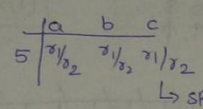 a b c
5 r1/r2 r1/r2 r1/r2
↳ SR